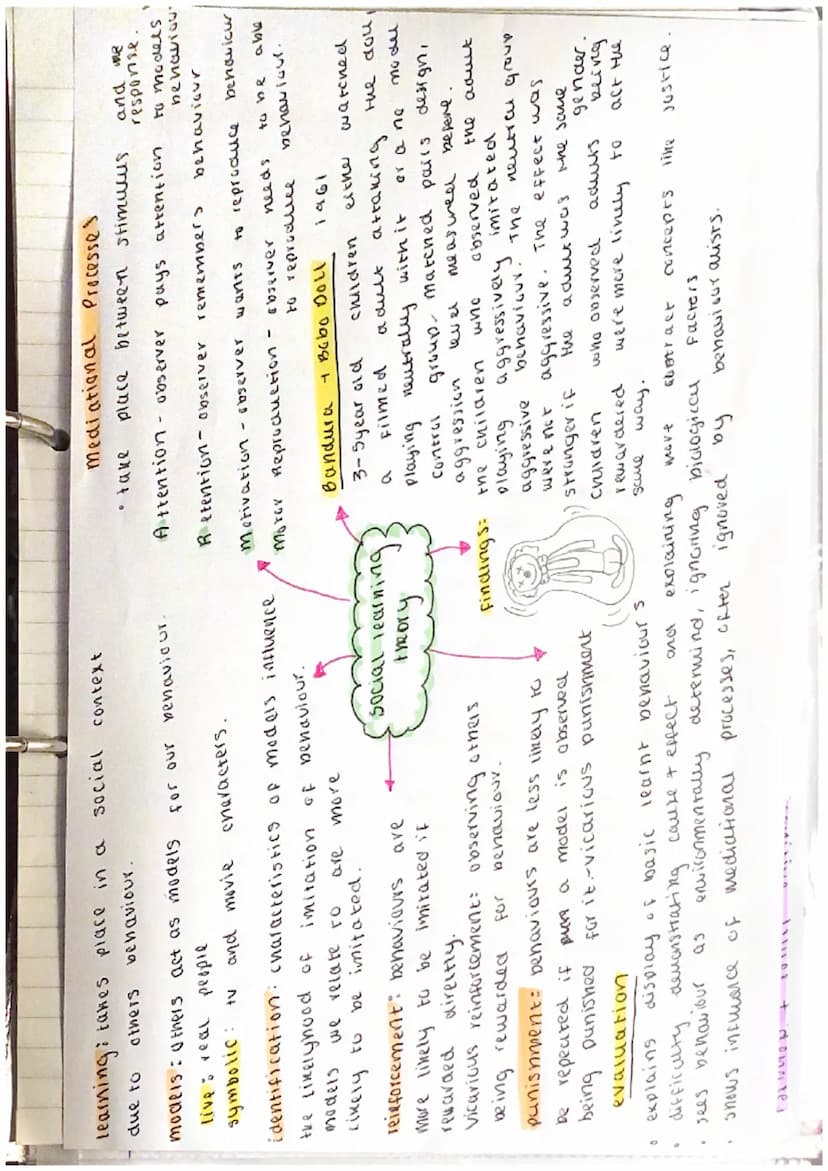 learning: takes place in a social context
due to others behaviour.
models: others act as models for our behaviour.
live: real people
symbolic: tv and movie characters.
identification: characteristics of models influence
the likelyhood of imitation of behaviour.
models we relate to are more
likely to be imitated.
reinforcement: behaviours are
more likely to be imitated if
rewarded directly.
Vicarious reinforcement: observing others
being rewarded for behaviour.
punishment: behaviours are less likely to
be repeated if a model is observed
being punished for it-vicarious punishment
social learning
theory
Mediational Processes
• take place between stimulus and the
response.
Attention - observer pays attention to models
behaviour
Retention - observer remembers behaviour
Motivation - observer wants to reproduce behaviour
Motor Reproduction - observer needs to be able
to reproduce behaviour.
Bandura + Bobo Doll 1961
3-5 year old children either watched
a filmed adult attaking the doll,
playing neutrally with it or a no model
control group- matched pairs design,
aggression level measured before.
Findings:
the children who observed the adult
playing aggressively imitated
aggressive behaviour. The neutral group
were not aggressive. The effect was
stronger if the adult was the same
gender.
Children who observed adults being
rewardered were more likely to act the
same way.
evaluation
• explains display of basic learnt behaviours
• difficulty demonstrating cause + effect and explaining more abstract concepts like justice.
• sees behaviour as environmentally determind, ignoring biological factors
• shows influence of mediational processes, often ignored by behaviouralists.